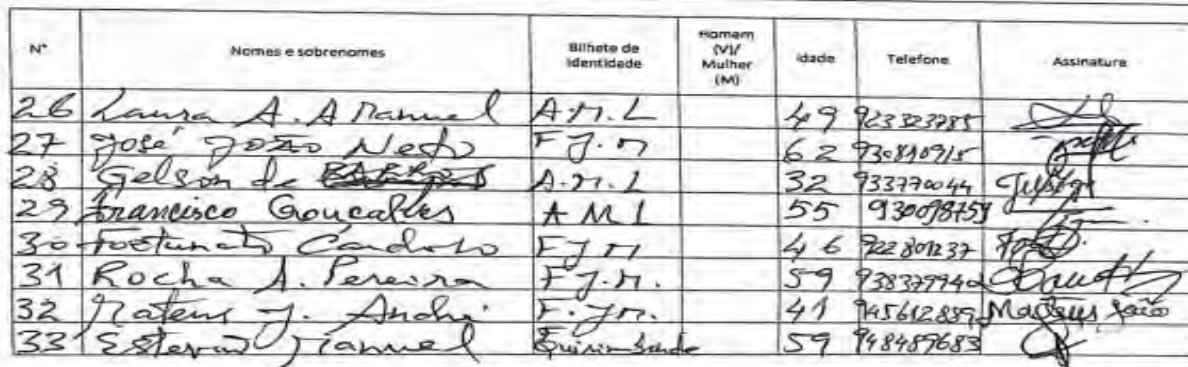 Nº Nomes e sobrenomes Bilhete de identidade Homem (V)/ Mulher (M) Idade Telefone Assinatura
26 Laura A. A Manuel A.M.L 49 923323785
27 José João Neto F.J.M 62 930810915
28 Gelson de A.M.L 32 933770044
29 Francisco Goncalves A M L 55 930098759
30 Fortunato Cardoso F J M 46 922801237
31 Rocha A. Pereira F.J.M. 59 938379940
32 Mateus J. André F.J.M. 41 945612889 Mateus João
33 Estevão Manuel 59 948489683